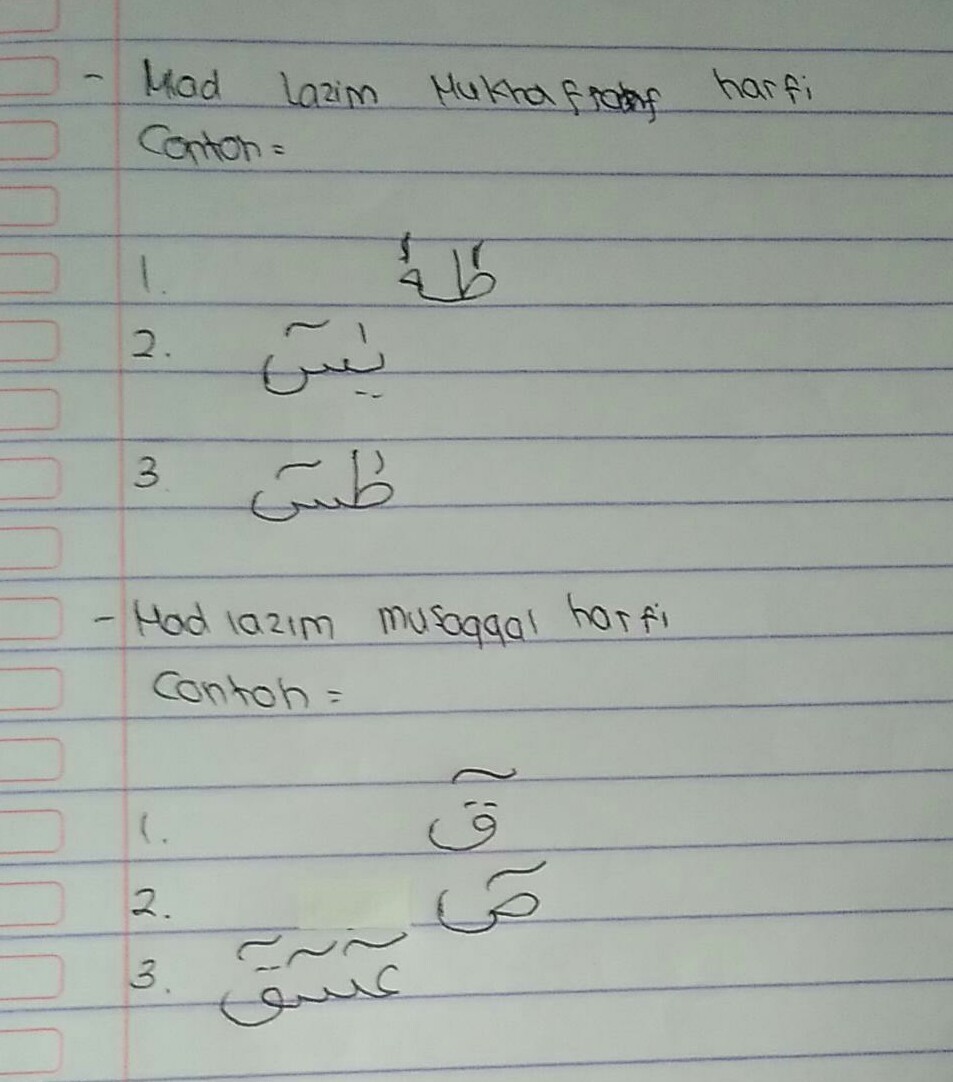 - Mad lazim Mukhaffaf harfi
Contoh =
1. طٰهٰ
2. يٰسٓ
3. طٰسٓ
- Mad lazim musaqqal harfi
Contoh =
1. قٓ
2. صٓ
3. عٓسٓقٓ